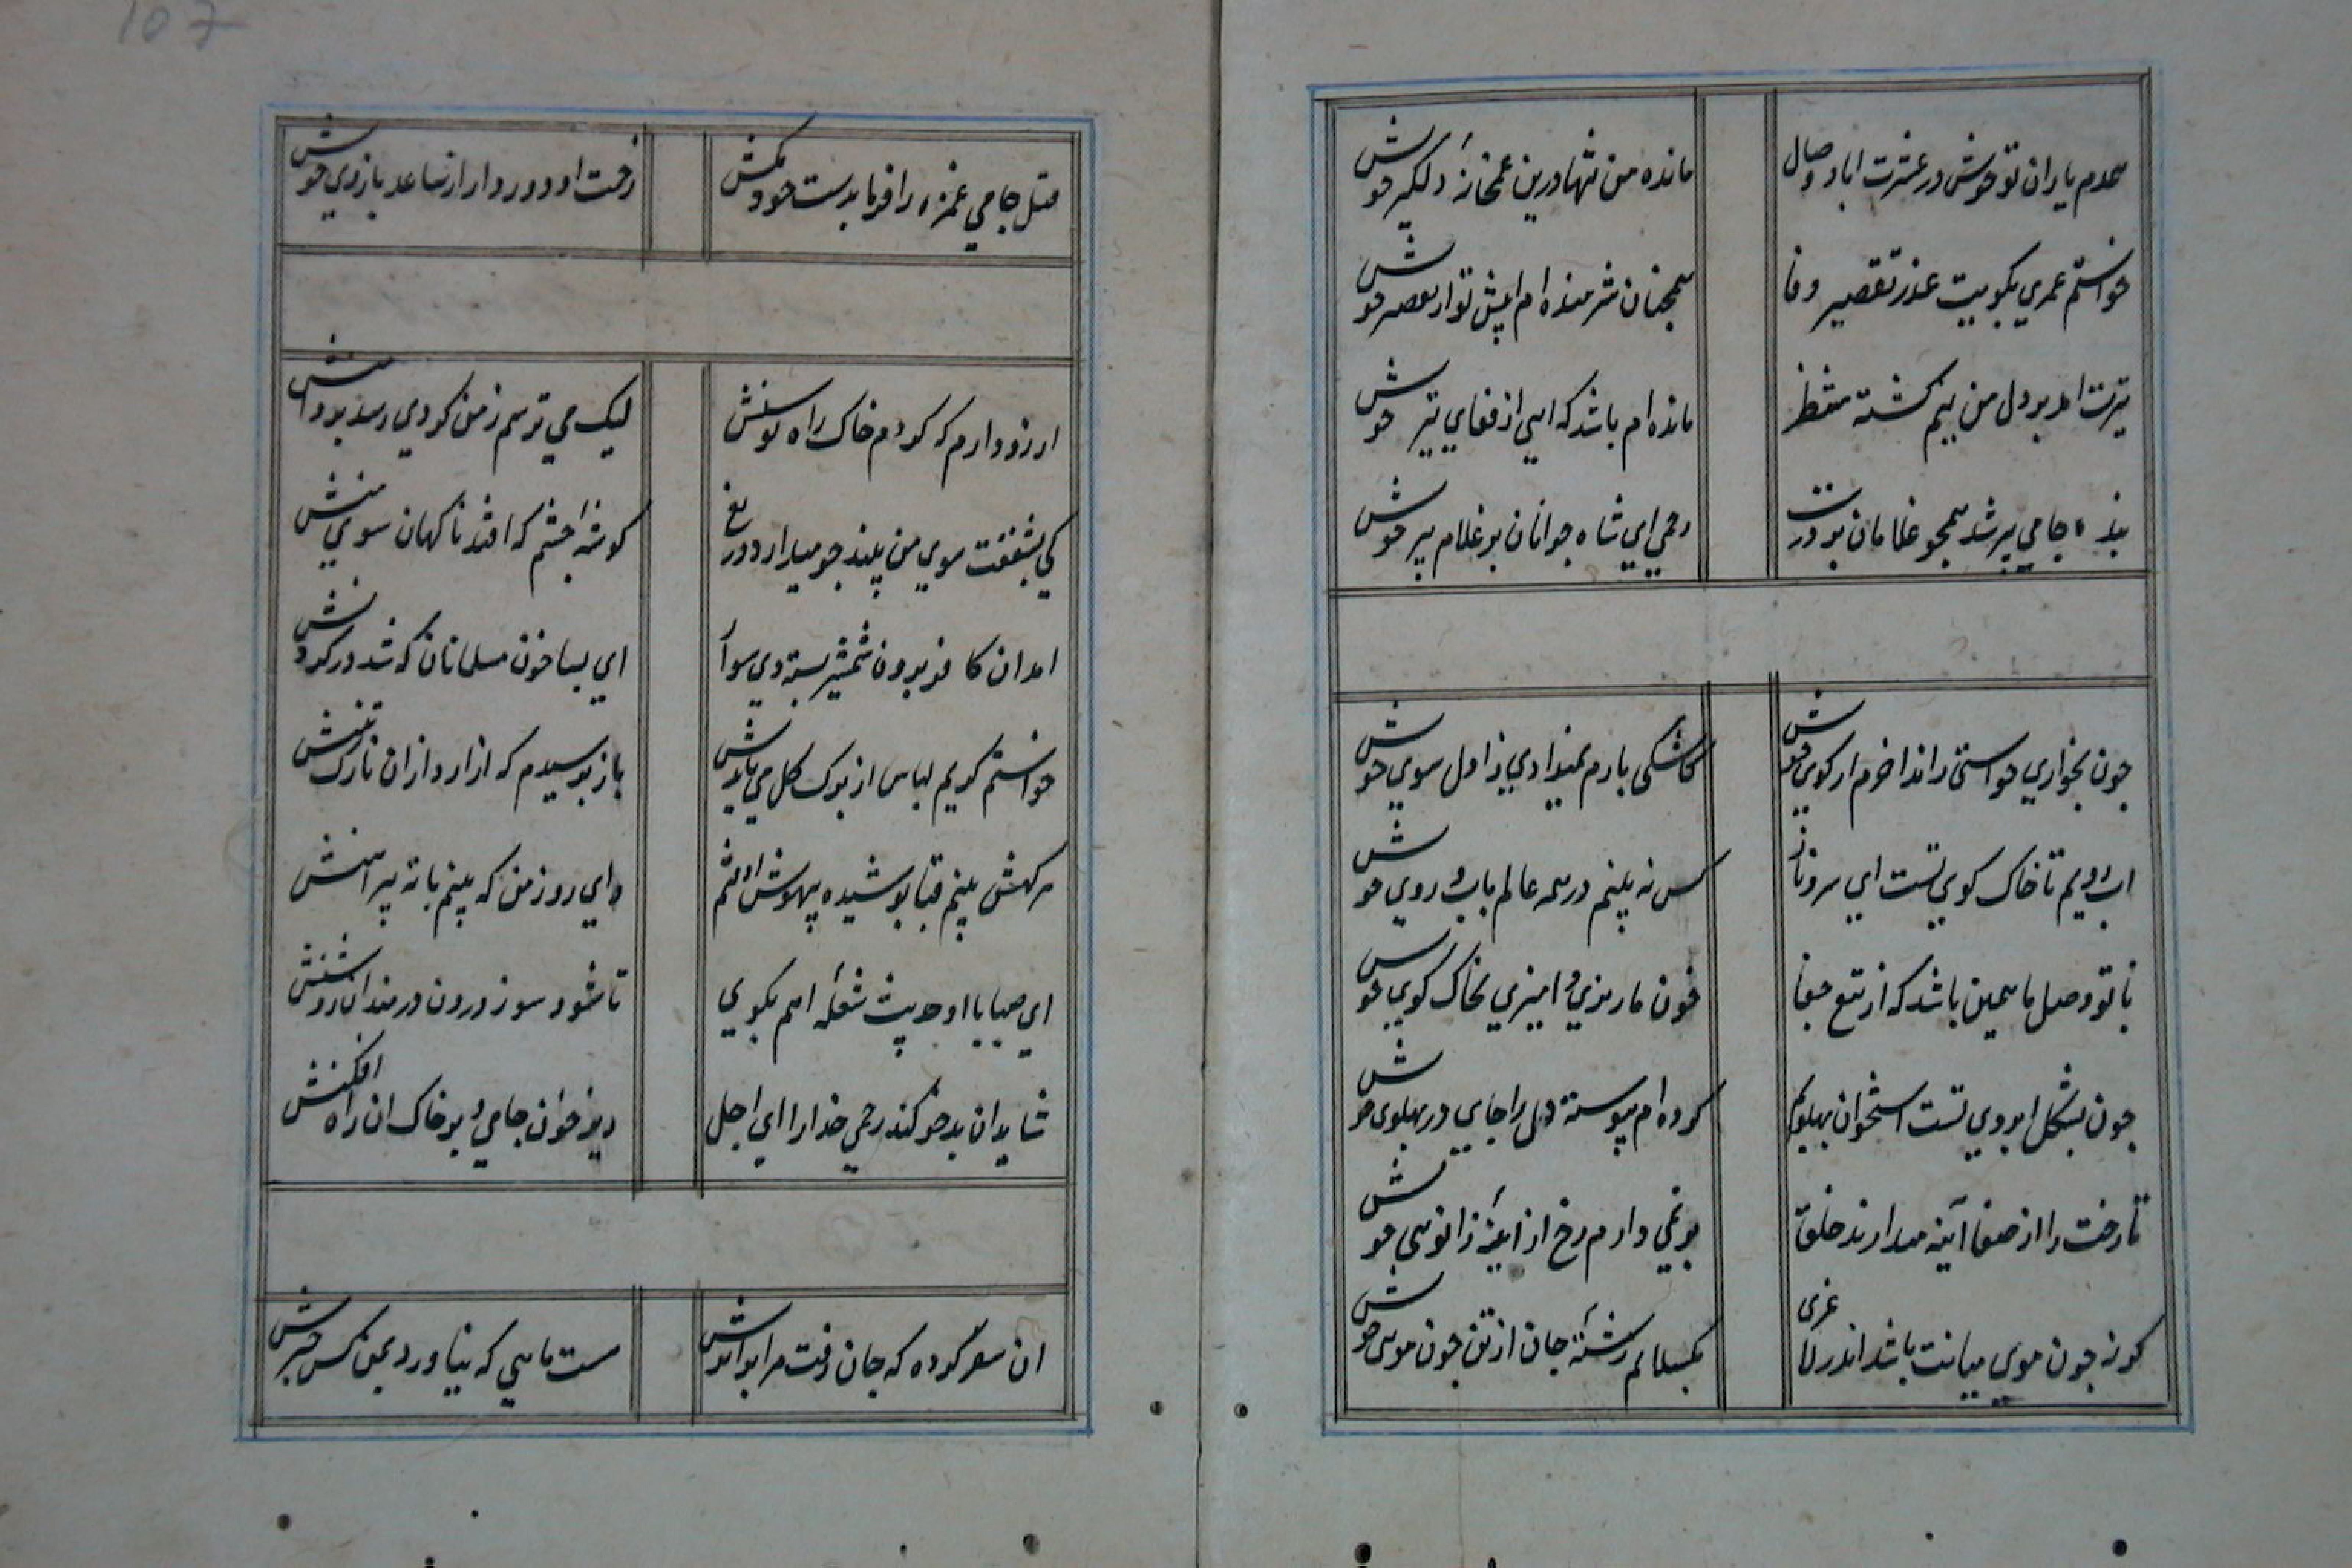 107
همدم یاران تو خوش در عشرت اباد وصال
مانده من تنها درین غمخانهٔ دلگیر خویش
خواستم عمری بکویت عذر تقصیر وفا
همچنان شرمنده ام پیش تو از تقصیر خویش
تیرت امد بر دل من نیم کشته منتظر
مانده ام باشد که ایی از قفای تیر خویش
بنده جامی پیر شد همچو غلامان بر درت
رحمی ای شاه جوانان بر غلام پیر خویش
چون بخواری خواستی راند اخرم از کوی خویش
کاشکی بارم نمیدادی ز اول سوی خویش
اب رویم تا خاک کوی تست ای سرو ناز
کس نه بینم در همه عالم باب روی خویش
با تو وصل ما همین باشد که از تیغ جفا
خون ما ریزی و امیزی بخاک کوی خویش
چون بشکل ابروی تست استخوان پهلوم
کرده ام پیوسته دل را جای در پهلوی خویش
تا رخت را از صفا آینه میدارند خلق
بر نمی دارم رخ از اینهٔ زانوی خویش
کر نه چون موی میانت باشد اندر لاغری
بکسلانم رشتهٔ جان از تن چون موی خویش
قتل جامی غمزه را فرما بدست خود مکش
زحمت او دور دار از ساعد و بازوی خویش
ارزو دارم که کردم خاک راه توسنش
لیک می ترسم ز من کردی رسد بر دامنش
کی بشفقت سوی من بیند چو میدارد دریغ
کوشهٔ چشم که افتد ناکهان سوی منش
امد ان کافر برون شمشیر بسته دی سوار
ای بسا خون مسلمانان که شد در کردنش
خواستم کویم لباس از برک کل می بایدش
باز ترسیدم که ازارد ازان نازک تنش
سرکهش بینم قبا پوشیده بیهوش اوفتم
وای روز من که بینم با ته پیراهنش
ای صبا با او حدیث شعلهٔ اهم بکوی
تا شود سوز درون دردمندان روشنش
شاید ان بدخو کند رحمی خدا را ای اجل
ریز خون جامی و بر خاک ان راه افکنش
ان سفر کرده که جان رفت مرا بر اثرش
هست ماهی که نیاورد بمن کس خبرش